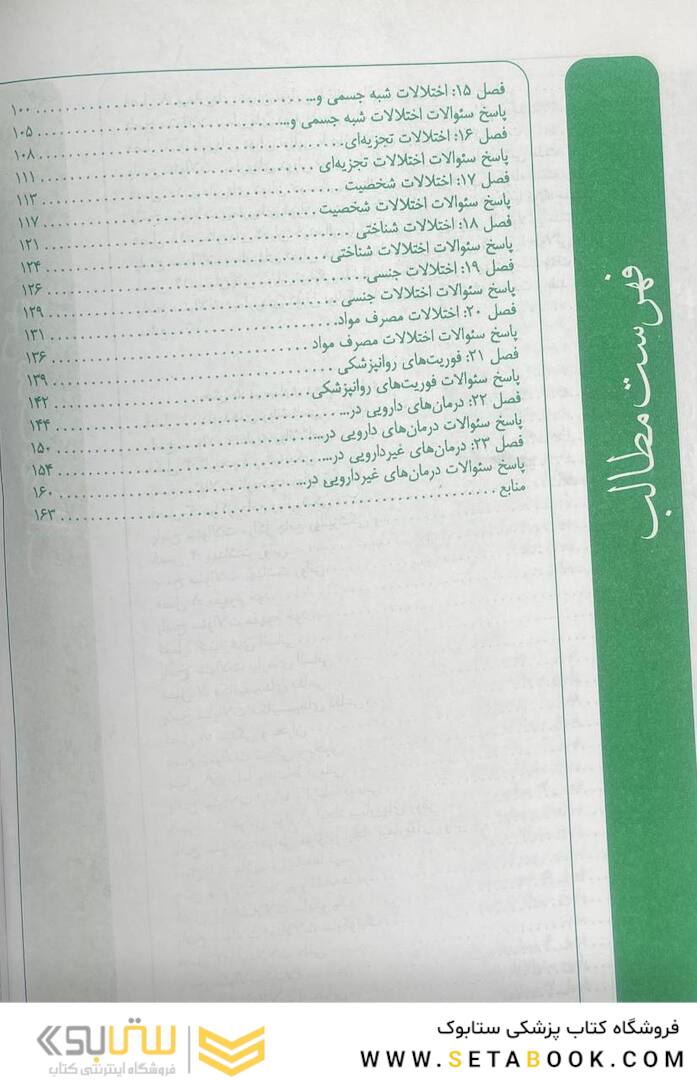 فهرست مطالب
فصل ۱۵: اختلالات شبه جسمی و... ۱۰۰
پاسخ سئوالات اختلالات شبه جسمی و... ۱۰۵
فصل ۱۶: اختلالات تجزیه‌ای ۱۰۸
پاسخ سئوالات اختلالات تجزیه‌ای ۱۱۱
فصل ۱۷: اختلالات شخصیت ۱۱۳
پاسخ سئوالات اختلالات شخصیت ۱۱۷
فصل ۱۸: اختلالات شناختی ۱۲۱
پاسخ سئوالات اختلالات شناختی ۱۲۴
فصل ۱۹: اختلالات جنسی ۱۲۶
پاسخ سئوالات اختلالات جنسی ۱۲۹
فصل ۲۰: اختلالات مصرف مواد ۱۳۱
پاسخ سئوالات اختلالات مصرف مواد ۱۳۶
فصل ۲۱: فوریت‌های روانپزشکی ۱۳۹
پاسخ سئوالات فوریت‌های روانپزشکی ۱۴۲
فصل ۲۲: درمان‌های دارویی در... ۱۴۴
پاسخ سئوالات درمان‌های دارویی در... ۱۵۰
فصل ۲۳: درمان‌های غیردارویی در... ۱۵۴
پاسخ سئوالات درمان‌های غیردارویی در... ۱۶۰
منابع ۱۶۳
فروشگاه کتاب پزشکی ستابوک
WWW.SETABOOK.COM
ستابوک
فروشگاه اینترنتی کتاب